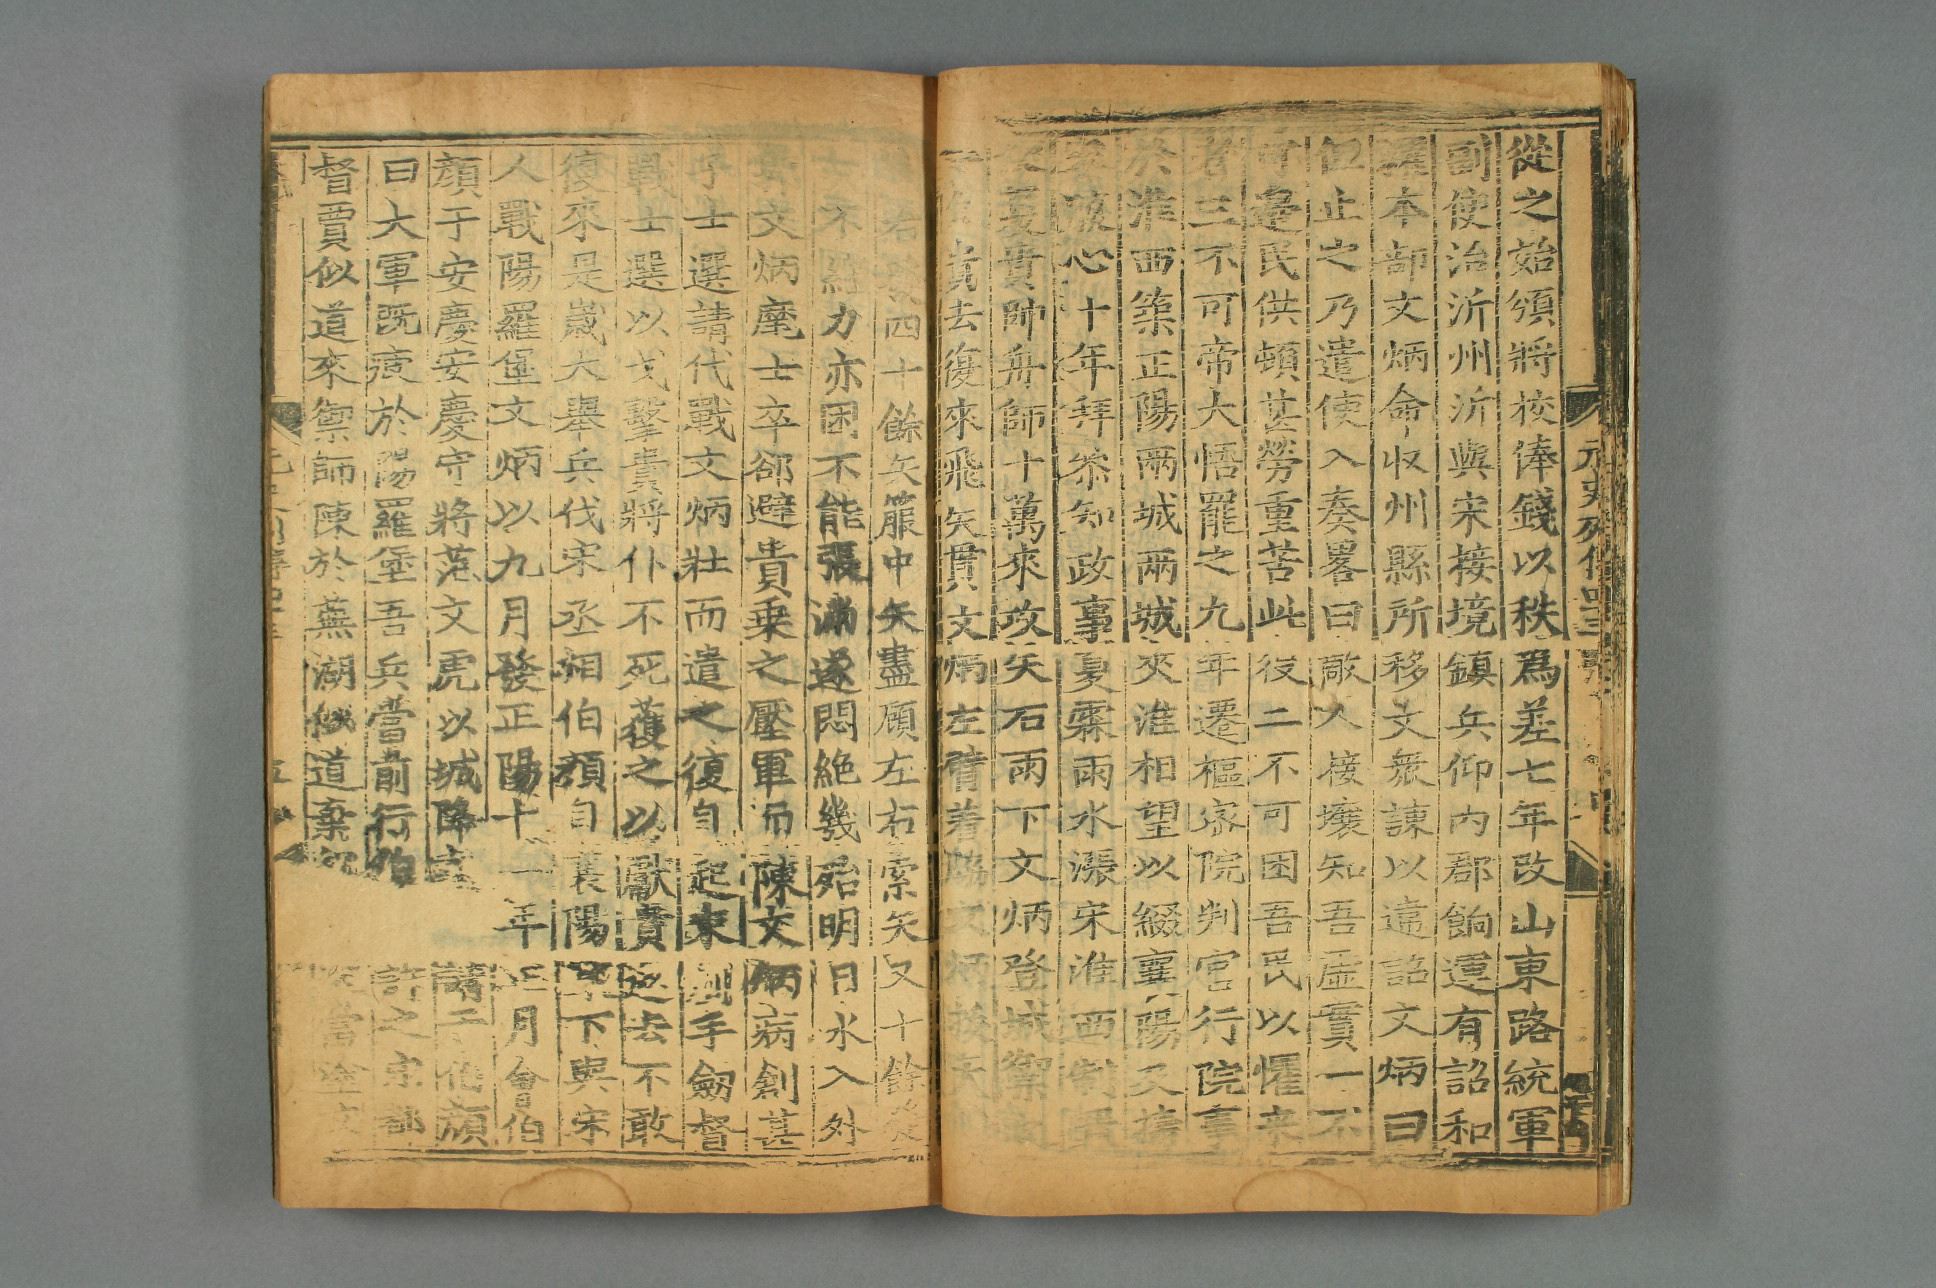 從之始頒將校俸錢以秩爲差七年改山東路統軍
副使治沂州沂與宋接境鎮兵仰内郡餉運有詔和
本部文炳命收州縣所移文衆諫以違詔文炳曰
但止之乃遣使入奏畧曰敵人接壤知吾虛實一不
可邊民供頓甚勞重苦此役二不可困吾民以懼来
者三不可帝大悟罷之九年遷樞宻院判官行院事
於淮西築正陽兩城兩城夾淮相望以綴襄陽又擣
腹心十年拜叅知政事夏霖雨水漲宋淮西制置
夏貴帥舟師十萬來攻矢石雨下文炳登城禦
貴去復來飛矢貫文炳左臂着脇文炳拔矢
右發四十餘矢箙中矢盡顧左右索矢又十餘發
不繼力亦困不能張滿遂悶絶幾殆明日水入外
文炳麾士卒却避貴乗之壓軍而陳文炳病創甚
子士選請代戰文炳壯而遣之復自起束創手劒督
戰士選以戈擊貴將仆不死獲之以獻貴遂去不敢
復來是嵗大舉兵伐宋丞相伯顏自襄陽東下與宋
人戰陽羅堡文炳以九月發正陽十一年正月會伯
顏于安慶安慶守將范文虎以城降文請于伯顏
曰大軍既疲於陽羅堡吾兵當前行伯許之宋都
督賈似道來禦師陳於蕪湖似道棄師當塗文
元史列傳四十三